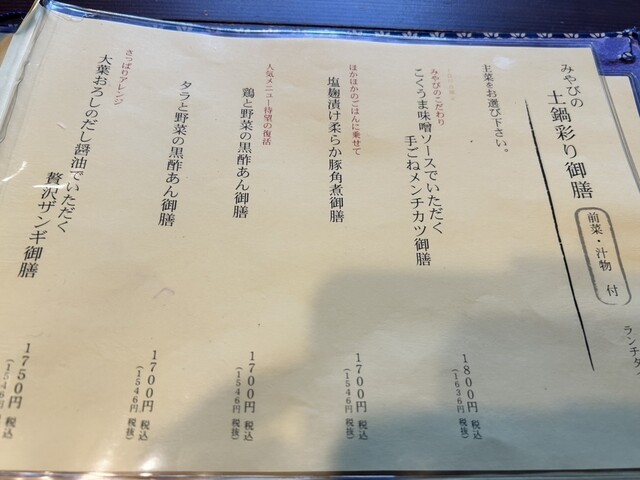 みやびの
土鍋彩り御膳
前菜・汁物 付
主菜をお選び下さい。
みやびのこだわり
こくうま味噌ソースでいただく
手ごねメンチカツ御膳
1800円 税込
(1636円 税抜)
ほかほかのごはんに乗せて
塩麹漬け柔らか豚角煮御膳
1700円 税込
(1546円 税抜)
人気メニュー待望の復活
鶏と野菜の黒酢あん御膳
1700円 税込
(1546円 税抜)
タラと野菜の黒酢あん御膳
1700円 税込
(1546円 税抜)
さっぱりアレンジ
大葉おろしのだし醤油でいただく
贅沢ザンギ御膳
1750円 税込
ランチタ